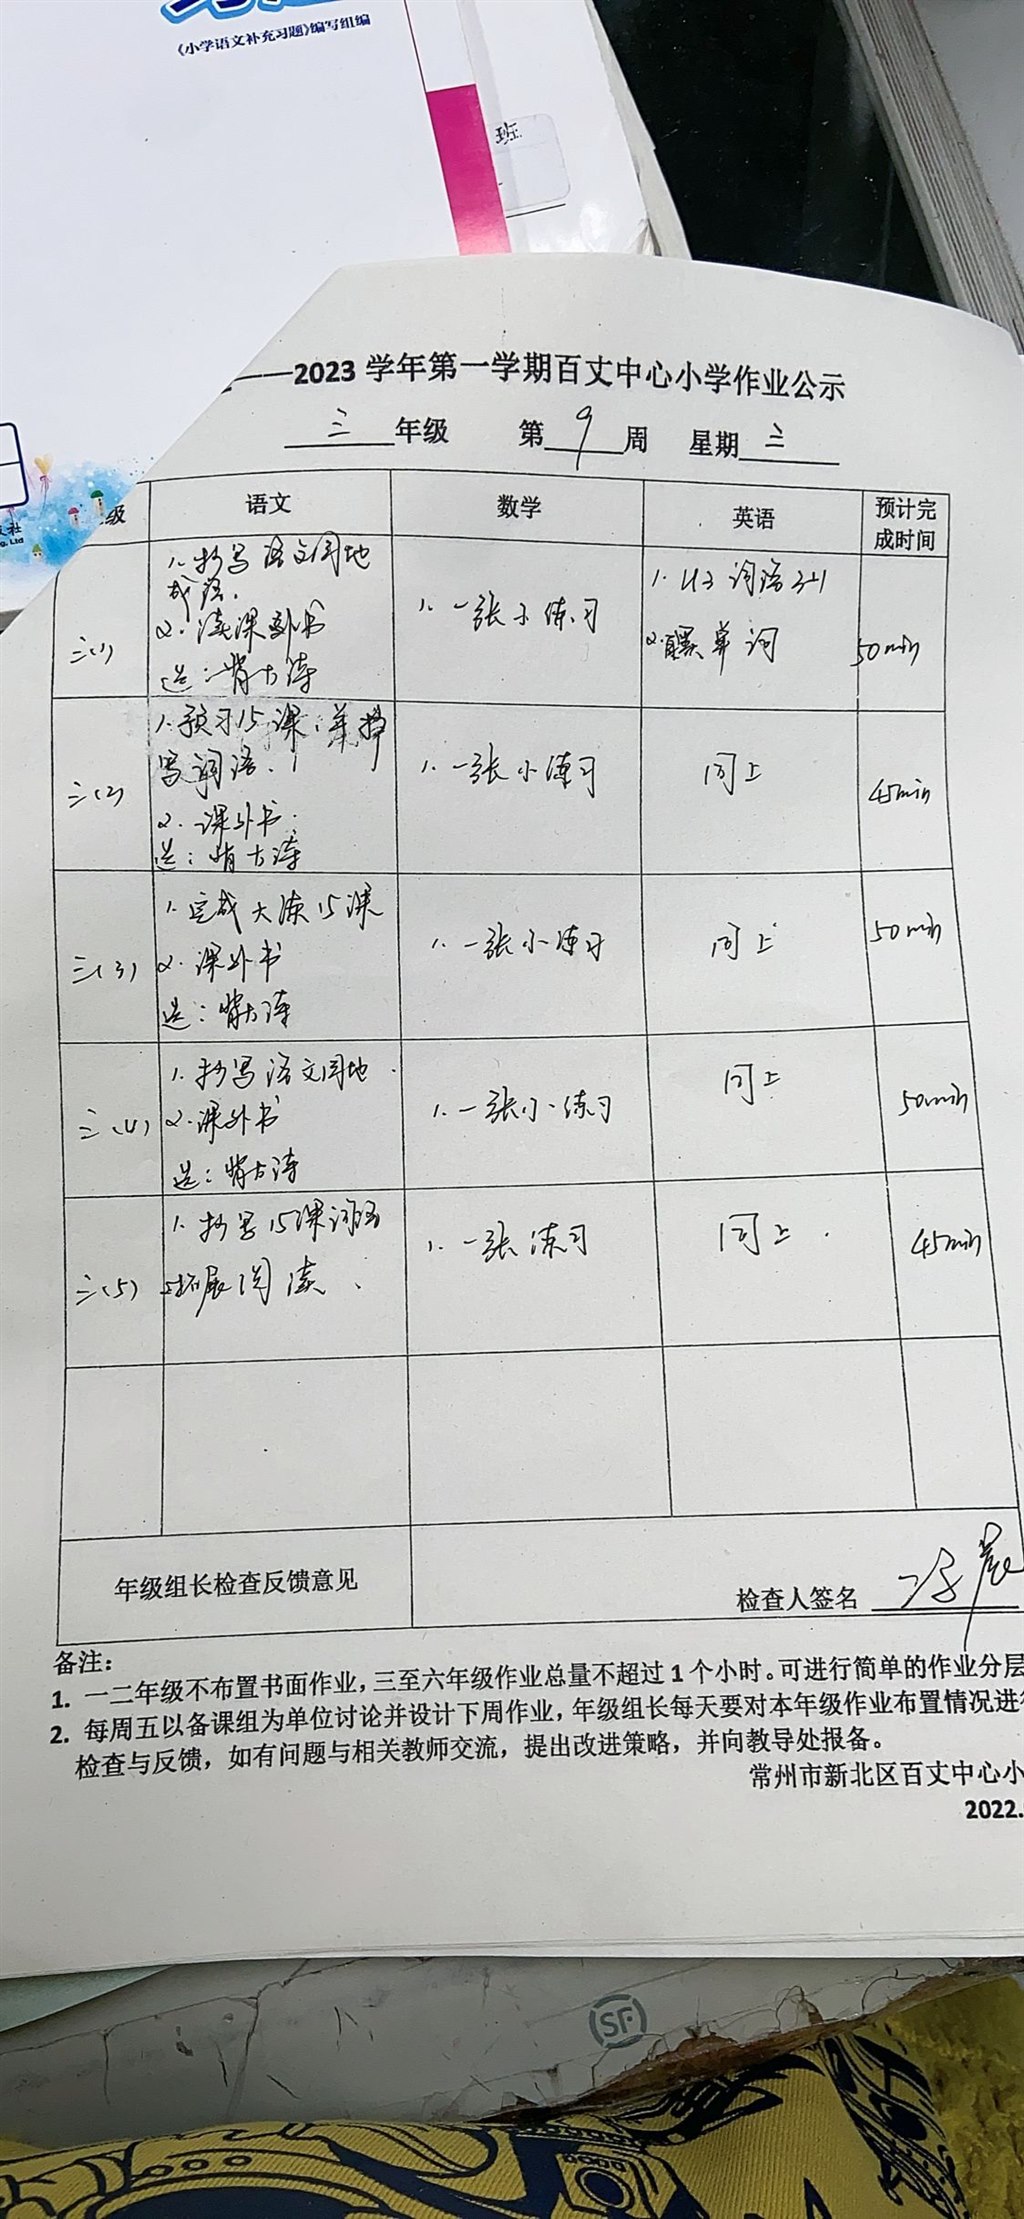 《小学语文补充习题》编写组编
班
——2023 学年第一学期百丈中心小学作业公示
三 年级 第 9 周 星期 三
级 语文 数学 英语 预计完
成时间
三(1) 1. 抄写语文园地
成语.
2. 读课外书
选:背古诗
1. 一张小练习
1. U3 词语3+1
2. 默单词
50min
三(2) 1. 预习15课,并抄
写词语.
2. 课外书.
选:背古诗
1. 一张小练习
同上
45min
三(3) 1. 完成大练15课
2. 课外书
选:背古诗
1. 一张小练习
同上
50min
三(4) 1. 抄写语文园地
2. 课外书
选:背古诗
1. 一张小练习
同上
50min
三(5) 1. 抄写15课词语
2. 拓展阅读.
1. 一张练习
同上.
45min
年级组长检查反馈意见 检查人签名
备注:
1. 一二年级不布置书面作业,三至六年级作业总量不超过 1 个小时。可进行简单的作业分层
2. 每周五以备课组为单位讨论并设计下周作业,年级组长每天要对本年级作业布置情况进行
检查与反馈,如有问题与相关教师交流,提出改进策略,并向教导处报备。
常州市新北区百丈中心小
2022.
SF